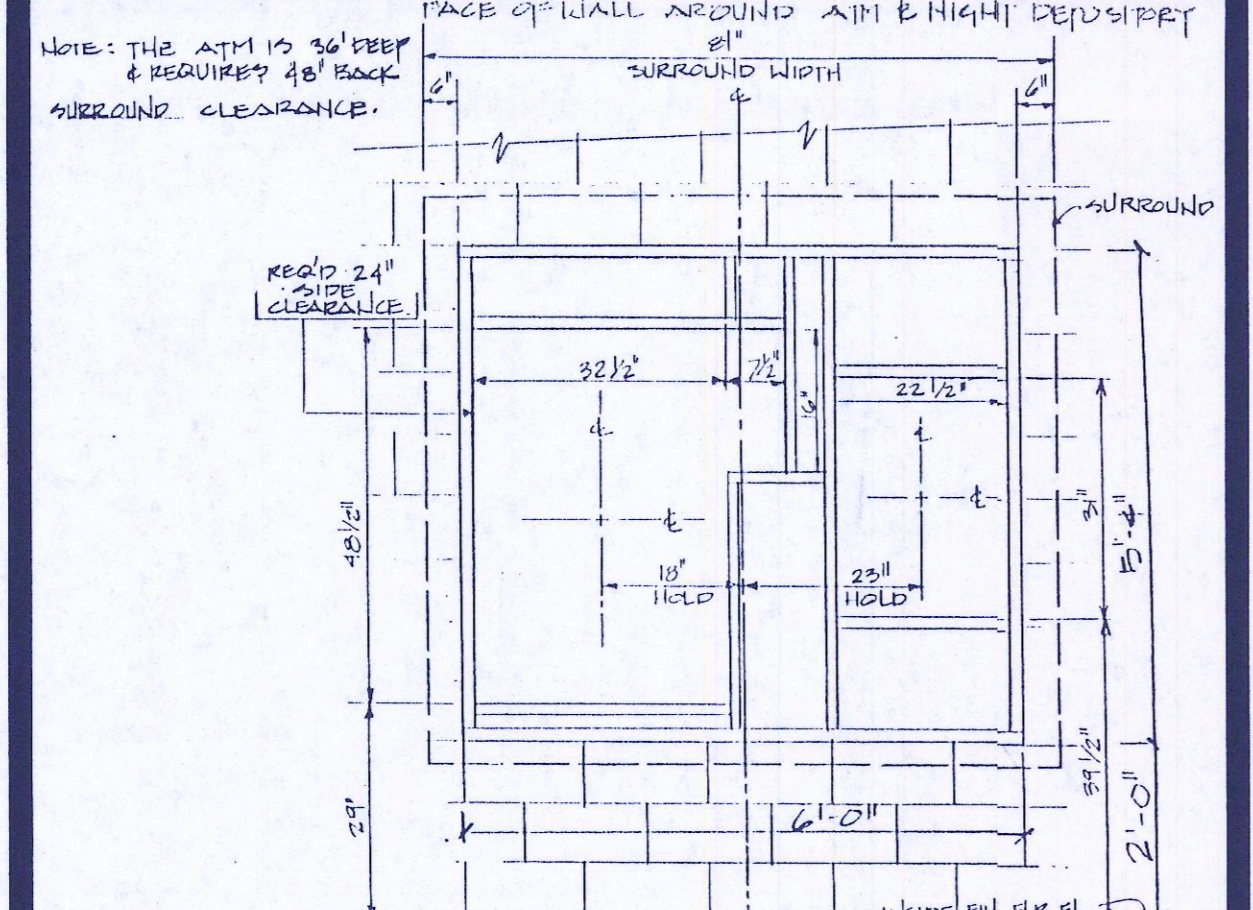 FACE OF WALL AROUND ATM & NIGHT DEPOSITORY
NOTE: THE ATM IS 36" DEEP
& REQUIRES 48" BACK
SURROUND CLEARANCE.
81"
SURROUND WIDTH
6"
6"
SURROUND
REQ'D 24"
SIDE
CLEARANCE
32 1/2"
7 1/2"
16"
22 1/2"
48 1/2"
31"
5'-4"
18"
HOLD
23"
HOLD
39 1/2"
29"
6'-0"
2'-0"